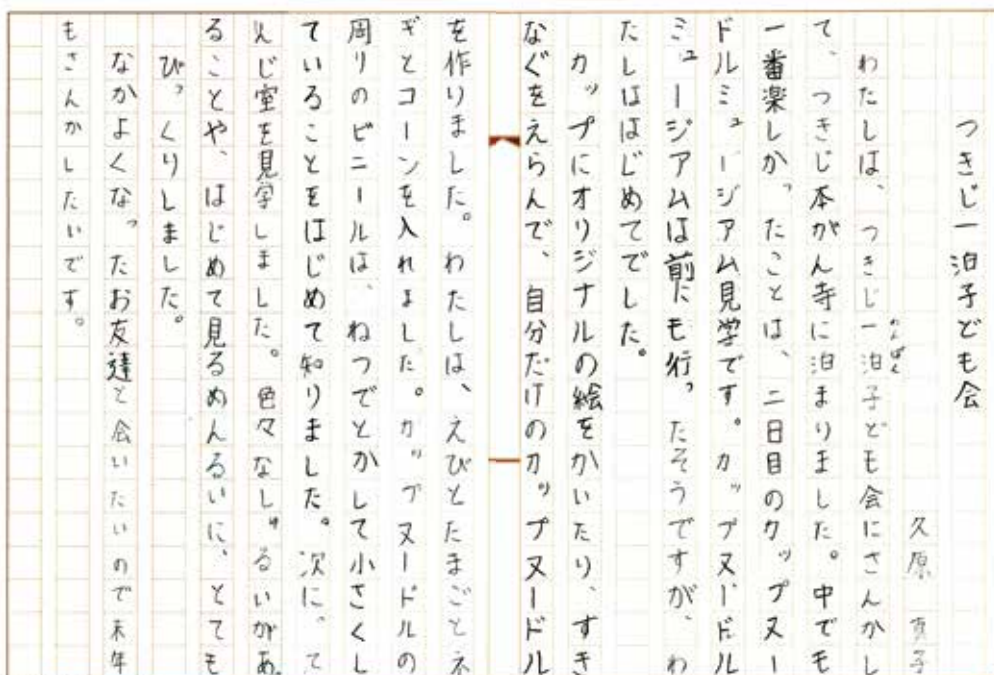 つきじ一泊子ども会
久原 真子
わたしは、つきじ一泊子ども会にさんかし
て、つきじ本がん寺に泊まりました。中でも
一番楽しかったことは、二日目のカップヌー
ドルミュージアム見学です。カップヌードル
ミュージアムは前にも行ったそうですが、わ
たしははじめてでした。
カップにオリジナルの絵をかいたり、すき
なぐをえらんで、自分だけのカップヌードル
を作りました。わたしは、えびとたまごとネ
ギとコーンを入れました。カップヌードルの
周りのビニールは、ねつでとかして小さくし
ていることをはじめて知りました。次に、て
んじ室を見学しました。色々なしゅるいがあ
ることや、はじめて見るめんるいに、とても
びっくりしました。
なかよくなったお友達と会いたいので来年
もさんかしたいです。